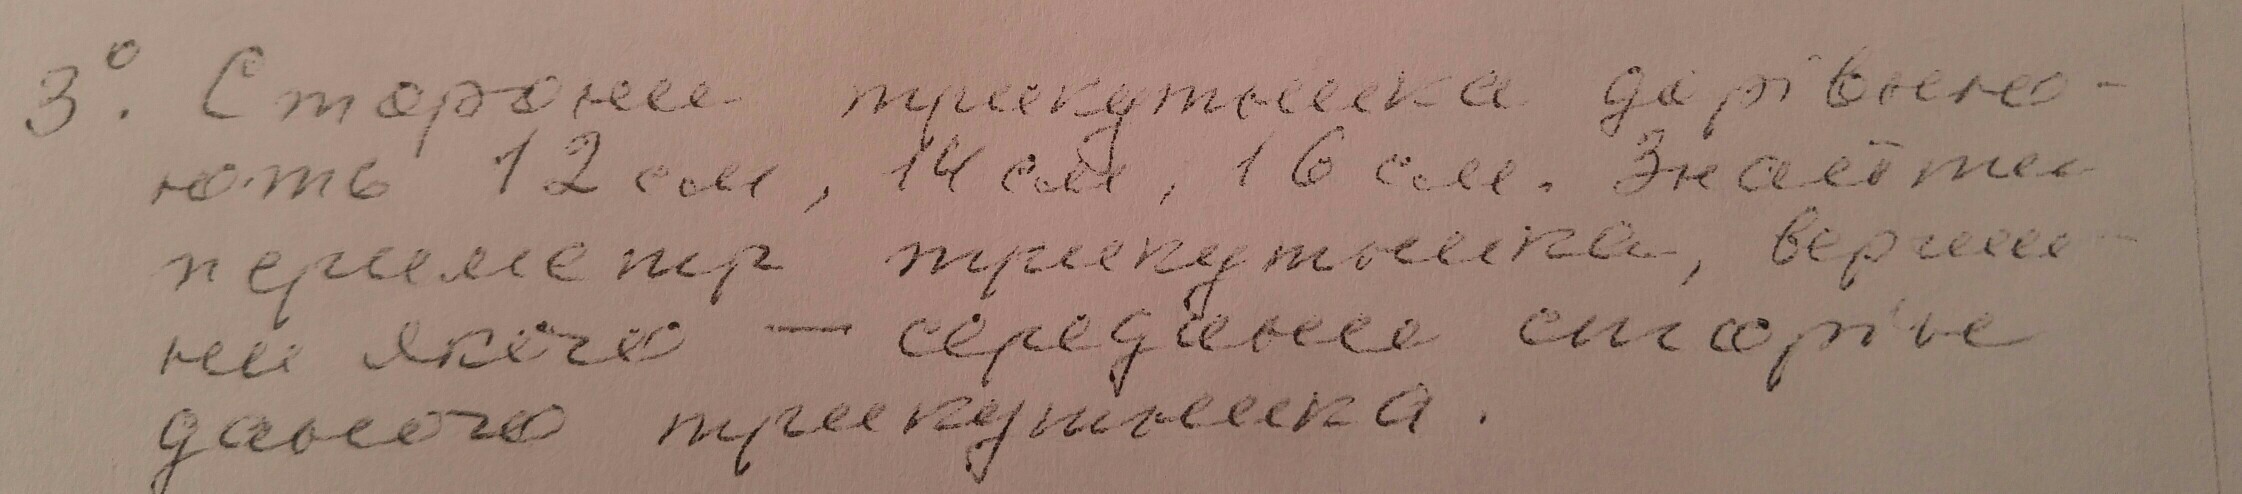 3°. Сторони трикутника дорівню-
ють 12 см, 14 см, 16 см. Знайти
периметр трикутника, верши-
ни якого — середини сторін
даного трикутника.